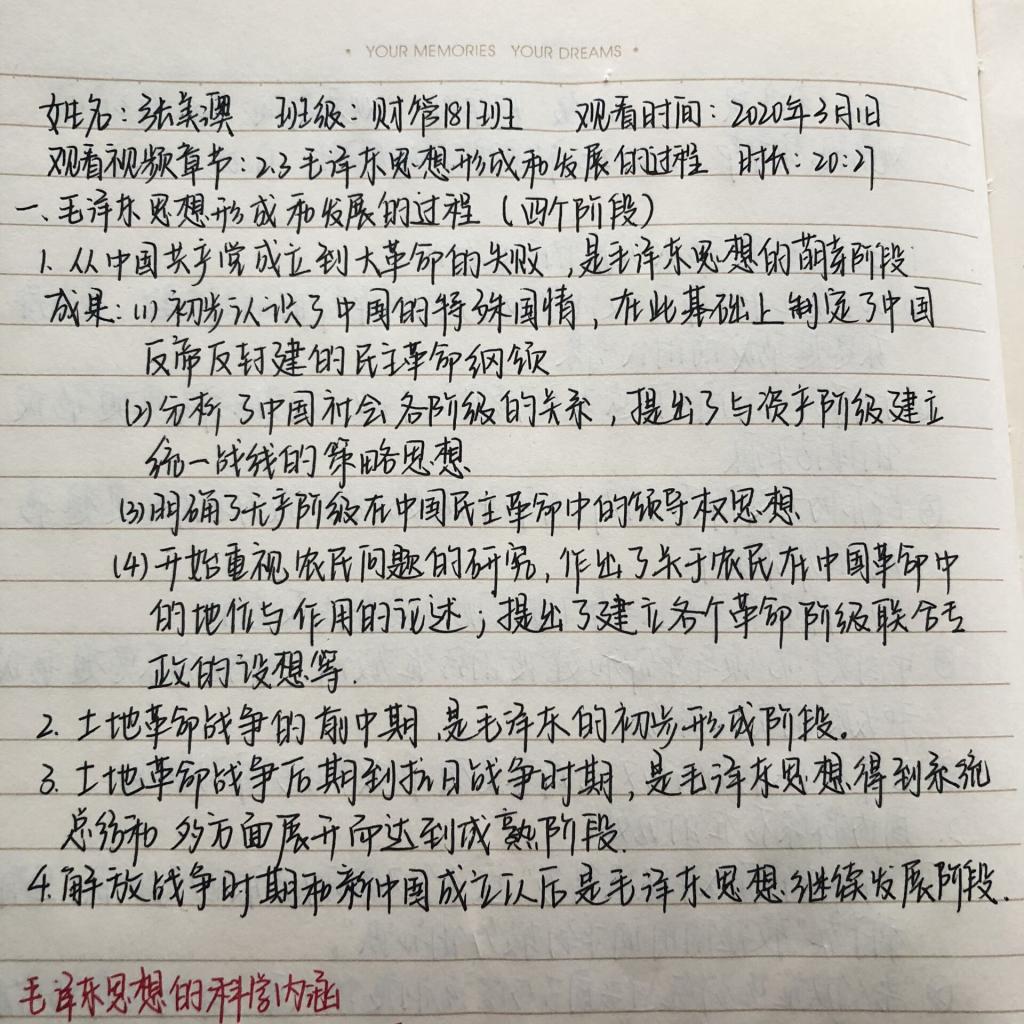 • YOUR MEMORIES YOUR DREAMS •
姓名：张美澳 班级：财管181班 观看时间：2020年3月1日
观看视频章节：2.3毛泽东思想形成和发展的过程 时长：20:27
一、毛泽东思想形成和发展的过程（四个阶段）
1. 从中国共产党成立到大革命的失败，是毛泽东思想的萌芽阶段
成果：(1)初步认识了中国的特殊国情，在此基础上制定了中国
反帝反封建的民主革命纲领
(2)分析了中国社会各阶级的关系，提出了与资产阶级建立
统一战线的策略思想
(3)明确了无产阶级在中国民主革命中的领导权思想
(4)开始重视农民问题的研究，作出了关于农民在中国革命中
的地位与作用的论述；提出了建立各个革命阶级联合专
政的设想等.
2. 土地革命战争的前中期，是毛泽东的初步形成阶段。
3. 土地革命战争后期到抗日战争时期，是毛泽东思想得到系统
总结和多方面展开而达到成熟阶段.
4. 解放战争时期和新中国成立以后是毛泽东思想继续发展阶段.
毛泽东思想的科学内涵